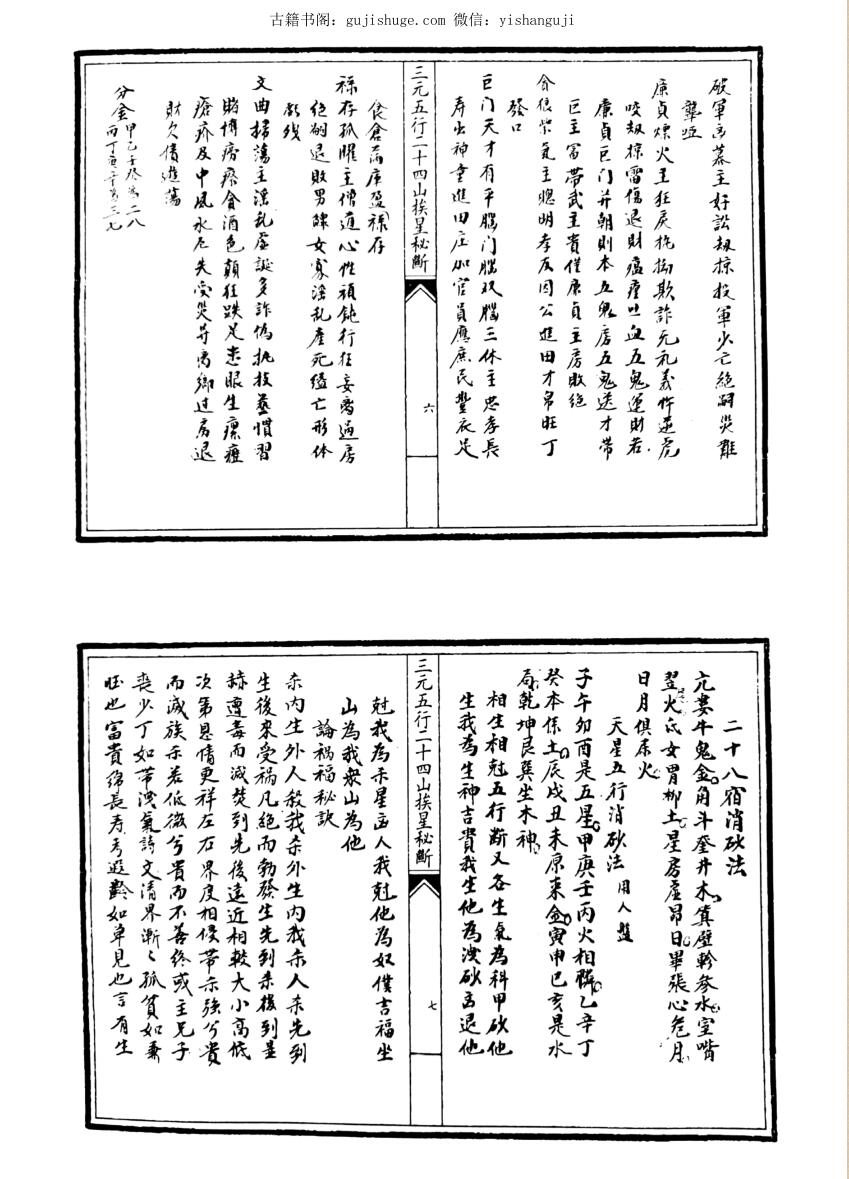 古籍书阁：gujishuge.com 微信：yishanguji
破军主好訟劫掠投軍少亡絕嗣災難
聾啞
廉貞燥火主狂戾拗欺詐无礼義忤逆虎
咬劫掠雷傷退財瘟瘟吐血五鬼運財若
廉貞巨门并朝則本五鬼房五鬼送才带
巨主富带武主貴僅廉貞主房敗絕
貪狼紫气主聰明孝友因公進田才帛旺丁
發口
巨门天才有平腦门腦双腦三体主忠孝長
寿出神童進田庄加官員應庶民豐衣足
三元五行二十四山挨星秘斷
六
食倉滿庫盈禄存
禄存孤曜主僧道心性頑鈍行狂妄喬過房
絕嗣退敗男鰥女寡淫乱產死縊亡形体
殘
文曲掃蕩主淫乱虛誕多詐偽執技藝慣習
賭博癆瘵貪酒色顛狂跌足患眼生瘰癧
瘡疥及中風水厄失受災异离鄉过房退
財欠債進蕩
分金甲乙壬癸為二八
丙丁庚辛為三七
二十八宿消砂法
亢婁牛鬼金角斗奎井木箕壁軫參水室嘴
翌火氐女胃柳土星房虛昴日畢張心危月
日月俱屬火
天星五行消砂法 用人盤
子午卯酉是五星甲庚壬丙火相鄰乙辛丁
癸本係土辰戌丑未原来金寅申巳亥是水
局乾坤艮巽坐木神
相生相尅五行斷又各生氣為科甲砂他
生我為生神吉貴我生他為洩砂主退他
三元五行二十四山挨星秘斷
七
尅我為杀星凶人我尅他為奴僕吉福坐
山為我众山為他
論禍福秘訣
杀内生外人殺我杀外生内我杀人杀先到
生後来受禍凡絕而勃發生先到杀後到显
赫遭毒而滅焚到先後遠近相較大小高低
次第恩情更祥左右界度相侵帶示強兮貴
而滅族示若低微兮貴而不善終或主兄子
喪少丁如带洩氣詩文清界漸〻孤貧如兼
旺也富貴綿長寿考遐齡如单見也言有生